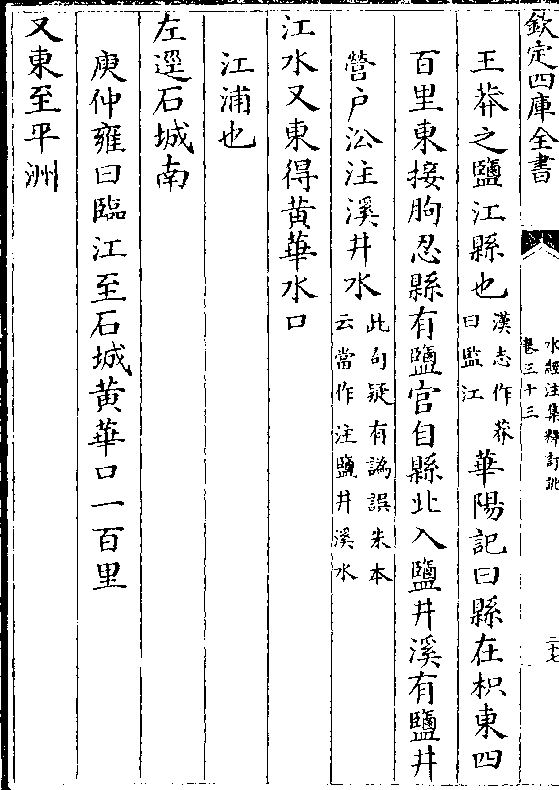 欽定四庫全書
水經注集釋訂訛
卷三十三
二十七
王莽之鹽江縣也漢志作莽曰監江華陽記曰縣在枳東四
百里東接朐忍縣有鹽官自縣北入鹽井溪有鹽井
營户沿注溪井水此句疑有譌誤朱本云當作注鹽井溪水
江水又東得黄華水口
江浦也
左逕石城南
庾仲雍曰臨江至石城黄華口一百里
又東至平洲